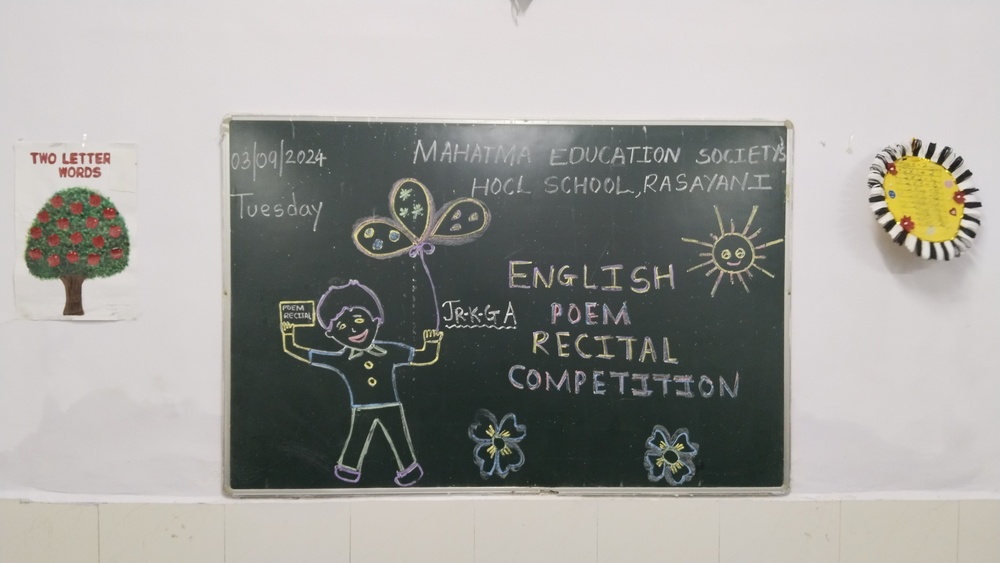 TWO LETTER
WORDS
03/09/2024
Tuesday
MAHATMA EDUCATION SOCIETY'S
HOCL SCHOOL, RASAYANI
POEM
RECITAL
Jr.K.G A
ENGLISH
POEM
RECITAL
COMPETITION